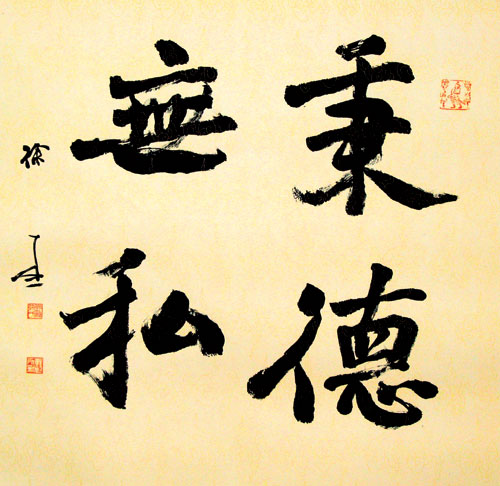 秉德
無私
徐